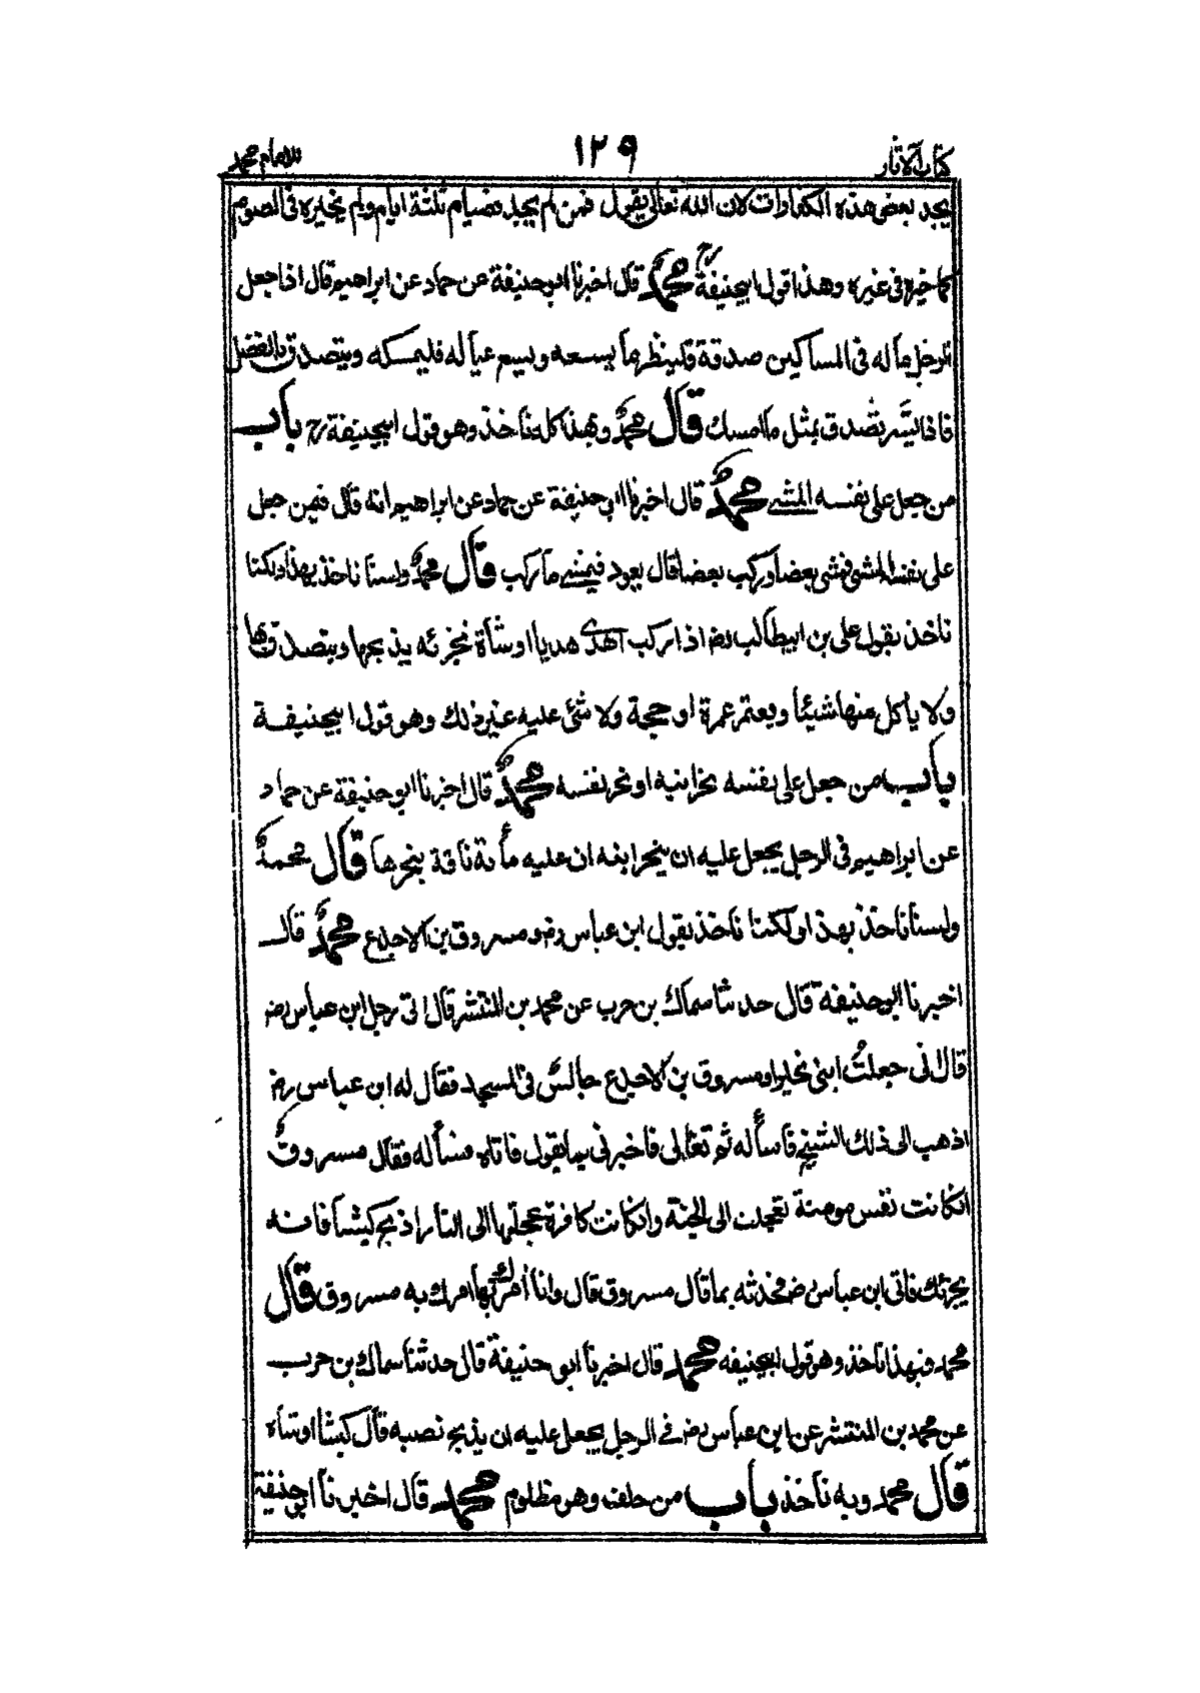 كتاب الاثار ١٢٩ للامام محمد
يجد بعض هذه الكفارات لان الله تعالى يقول فمن لم يجد فصيام ثلثة ايام ولم يخيره فى الصوم
كما خيره فى غيره وهذا قول ابيحنيفة رح محمد قال اخبرنا ابو حنيفة عن حماد عن ابراهيم قال اذا جعل
الرجل ماله فى المساكين صدقة فلينظر ما يسعه ويسع عياله فليمسكه ويتصدق بالفضل
فاذا ايسر تصدق بمثل ما امسك قال محمد وبهذا كله ناخذ وهو قول ابيحنيفة رح باب
من جعل على نفسه المشى محمد قال اخبرنا ابو حنيفة عن حماد عن ابراهيم انه قال فيمن جعل
على نفسه المشى فمشى بعضا وركب بعضا قال يعود فيمشى ما ركب قال محمد ولسنا ناخذ بهذا ولكنا
ناخذ بقول على بن ابيطالب رضه اذا ركب اهدى هديا او شاة تجزئه يذبحها ويتصدق بها
ولا ياكل منها شيئا ويعتمر عمرة او حجة ولا شئ عليه غير ذلك وهو قول ابيحنيفة
باب من جعل على نفسه نحر ابنه او نحر نفسه محمد قال اخبرنا ابو حنيفة عن حماد
عن ابراهيم فى الرجل يجعل عليه ان ينحر ابنه ان عليه مأئة ناقة ينحرها قال محمد
ولسنا ناخذ بهذا ولكنا ناخذ بقول ابن عباس رضه ومسروق بن الاجدع محمد قال
اخبرنا ابو حنيفة قال حدثنا سماك بن حرب عن محمد بن المنتشر قال اتى رجل ابن عباس رضه
قال انى جعلت ابنى نحيرا ومسروق بن الاجدع جالس فى المسجد فقال له ابن عباس رضه
اذهب الى ذلك الشيخ فاسأله ثم تعال الى فاخبرنى بما يقول فاتاه فسأله فقال مسروق
انكانت نفس مومنة تعجلت الى الجنة وانكانت كافرة عجلتها الى النار اذبح كبشا فانه
يجزئك فاتى ابن عباس رضه فحدثه بما قال مسروق قال وانا اٰمرك بما امرك به مسروق قال
محمد وبهذا ناخذ وهو قول ابيحنيفه محمد قال اخبرنا ابو حنيفة قال حدثنا سماك بن حرب
عن محمد بن المنتشر عن ابن عباس رضه فى الرجل يجعل عليه ان يذبح نفسه قال كبشا او شاة
قال محمد وبه ناخذ باب من حلف وهو مظلوم محمد قال اخبرنا ابو حنيفة